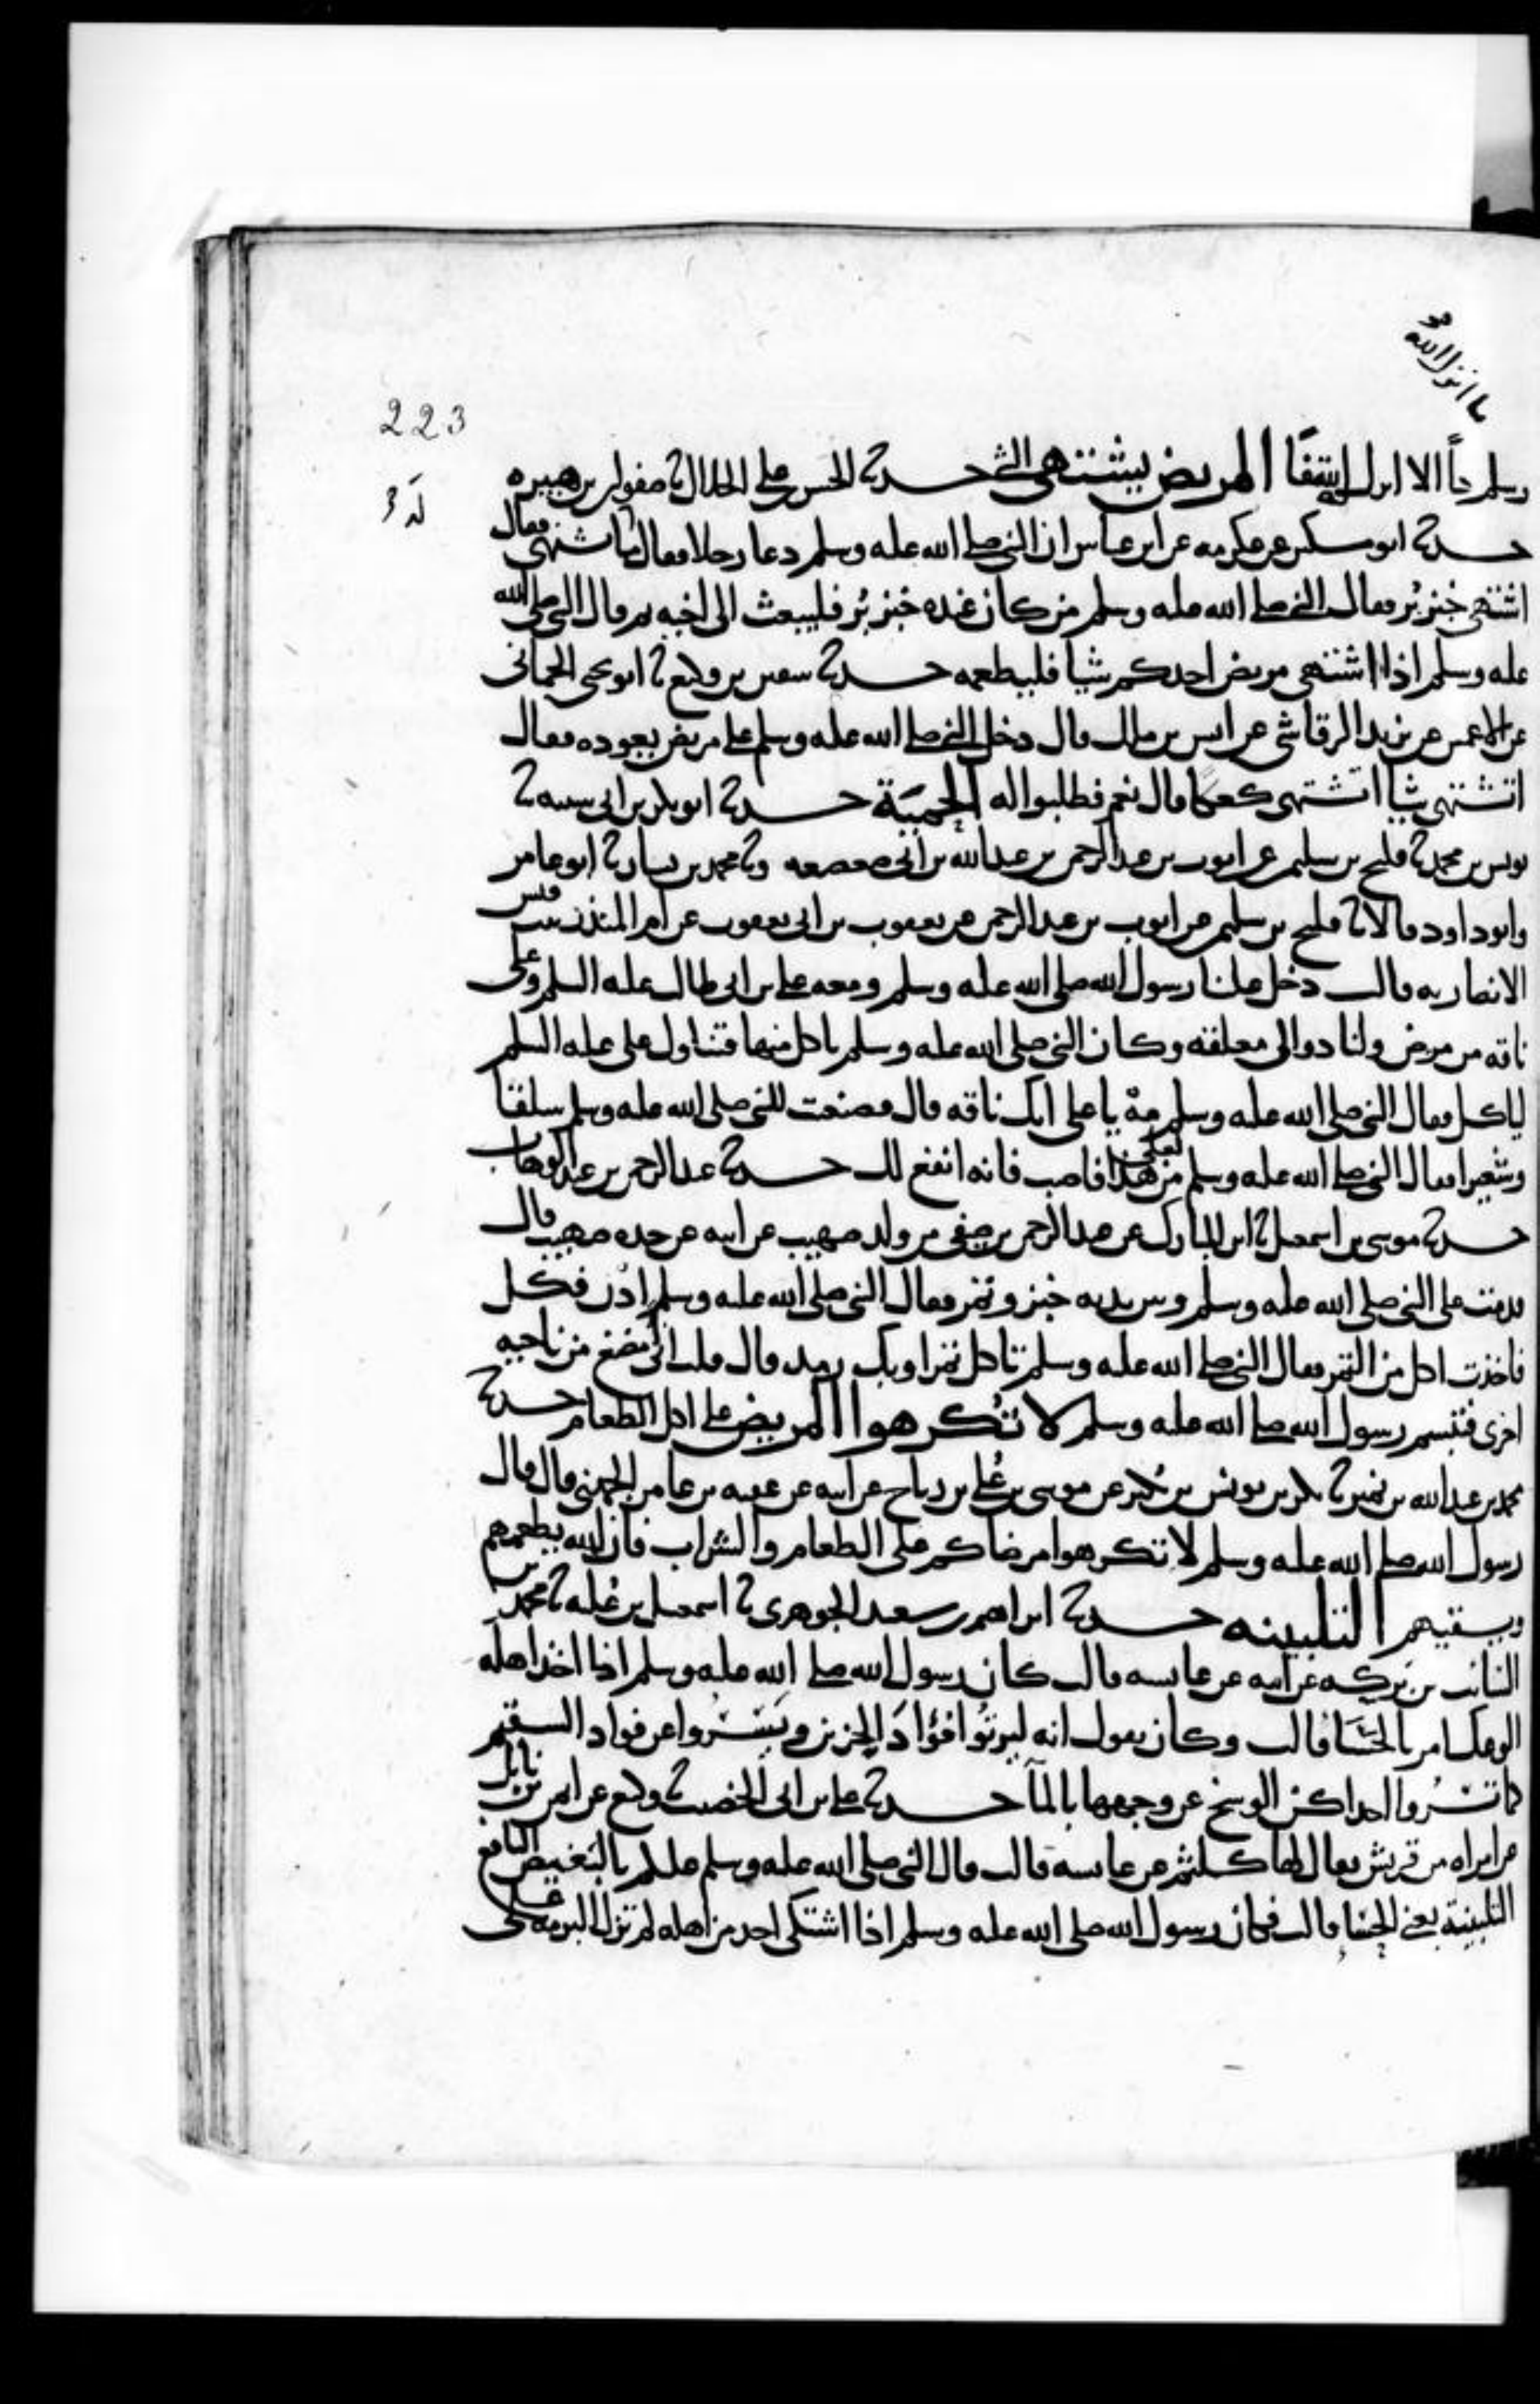 ما انزل الله
223
وسلم دآ الا انزل له شفآ المريض يشتهي الشي حدثنا الحسن بن علي الخلال نا صفوان بن هبيره
حدثنا ابو مكين عن عكرمه عن ابن عباس ان النبي صلى الله عليه وسلم دعا رجلا فقال ما تشتهي فقال
اشتهي خبز بُر فقال النبي صلى الله عليه وسلم من كان عنده خبز بُر فليبعث الى اخيه ثم قال النبي صلى الله
عليه وسلم اذا اشتهى مريض احدكم شيا فليطعمه حدثنا سفين بن وكيع نا ابو يحيى الحماني
عن الاعمش عن يزيد الرقاشي عن انس بن ملك قال دخل النبي صلى الله عليه وسلم على مريض يعوده فقال
اتشتهي شيا اتشتهي كعكا قال نعم فطلبوا له الحِميَة حدثنا ابو بكر بن ابي شيبه نا
يونس بن محمد نا فليح بن سليمن عن ايوب بن عبد الرحمن بن عبد الله بن ابي صعصعه ونا محمد بن بشار نا ابو عامر
وابو داود قالا نا فليح بن سليمن عن ايوب بن عبد الرحمن عن يعقوب بن ابي يعقوب عن ام المنذر بنت قيس
الانصاريه قالت دخل علينا رسول الله صلى الله عليه وسلم ومعه علي بن ابي طالب عليه السلم وعلي
ناقه من مرض ولنا دوالي معلقه وكان النبي صلى الله عليه وسلم ياكل منها فتناول علي عليه السلم
لياكل فقال النبي صلى الله عليه وسلم مهْ يا علي انك ناقه قال فصنعت للنبي صلى الله عليه وسلم سلقا
وشعيرا فقال النبي صلى الله عليه وسلم يا علي من هذا فاصب فانه انفع لك حدثنا عبد الرحمن بن عبد الوهاب
حدثنا موسى بن اسمعيل نا ابن المبارك عن عبد الرحمن بن صيفي من ولد صهيب عن ابيه عن جده صهيب قال
قدمت على النبي صلى الله عليه وسلم وبين يديه خبز وتمر فقال النبي صلى الله عليه وسلم ادن فكل
فاخذت اكل من التمر فقال النبي صلى الله عليه وسلم تاكل تمرا وبك رمد قال قلت اني امضغ من ناحيه
اخرى فتبسم رسول الله صلى الله عليه وسلم لا تُكرهوا المريض على اكل الطعام حدثنا
محمد بن عبد الله بن نمير نا بكر بن يونس بن بُكير عن موسى بن عُلي بن رباح عن ابيه عن عقبه بن عامر الجهني قال قال
رسول الله صلى الله عليه وسلم لا تكرهوا مرضاكم على الطعام والشراب فان الله يطعمهم
ويسقيهم التلبينه حدثنا ابراهيم بن سعيد الجوهري نا اسمعيل بن عُليه نا محمد بن
السائب بن بركه عن امه عن عايشه قالت كان رسول الله صلى الله عليه وسلم اذا اخذ اهله
الوعك امر بالحسَا قالت وكان يقول انه ليرتُو افؤادَ الحزين ويَسْرُوا عن فواد السقيم
كما تسْرُوا احداكن الوسخ عن وجهها بالمآ حدثنا علي بن ابي الخصيب نا وكيع عن ايمن بن نابل
عن امراه من قريش يقال لها كلثم عن عايشه قالت قال النبي صلى الله عليه وسلم عليكم بالبغيض النافع
التلبينة يعني الحسَا قالت فكان رسول الله صلى الله عليه وسلم اذا اشتكى احد من اهله لم تزل البرمه على